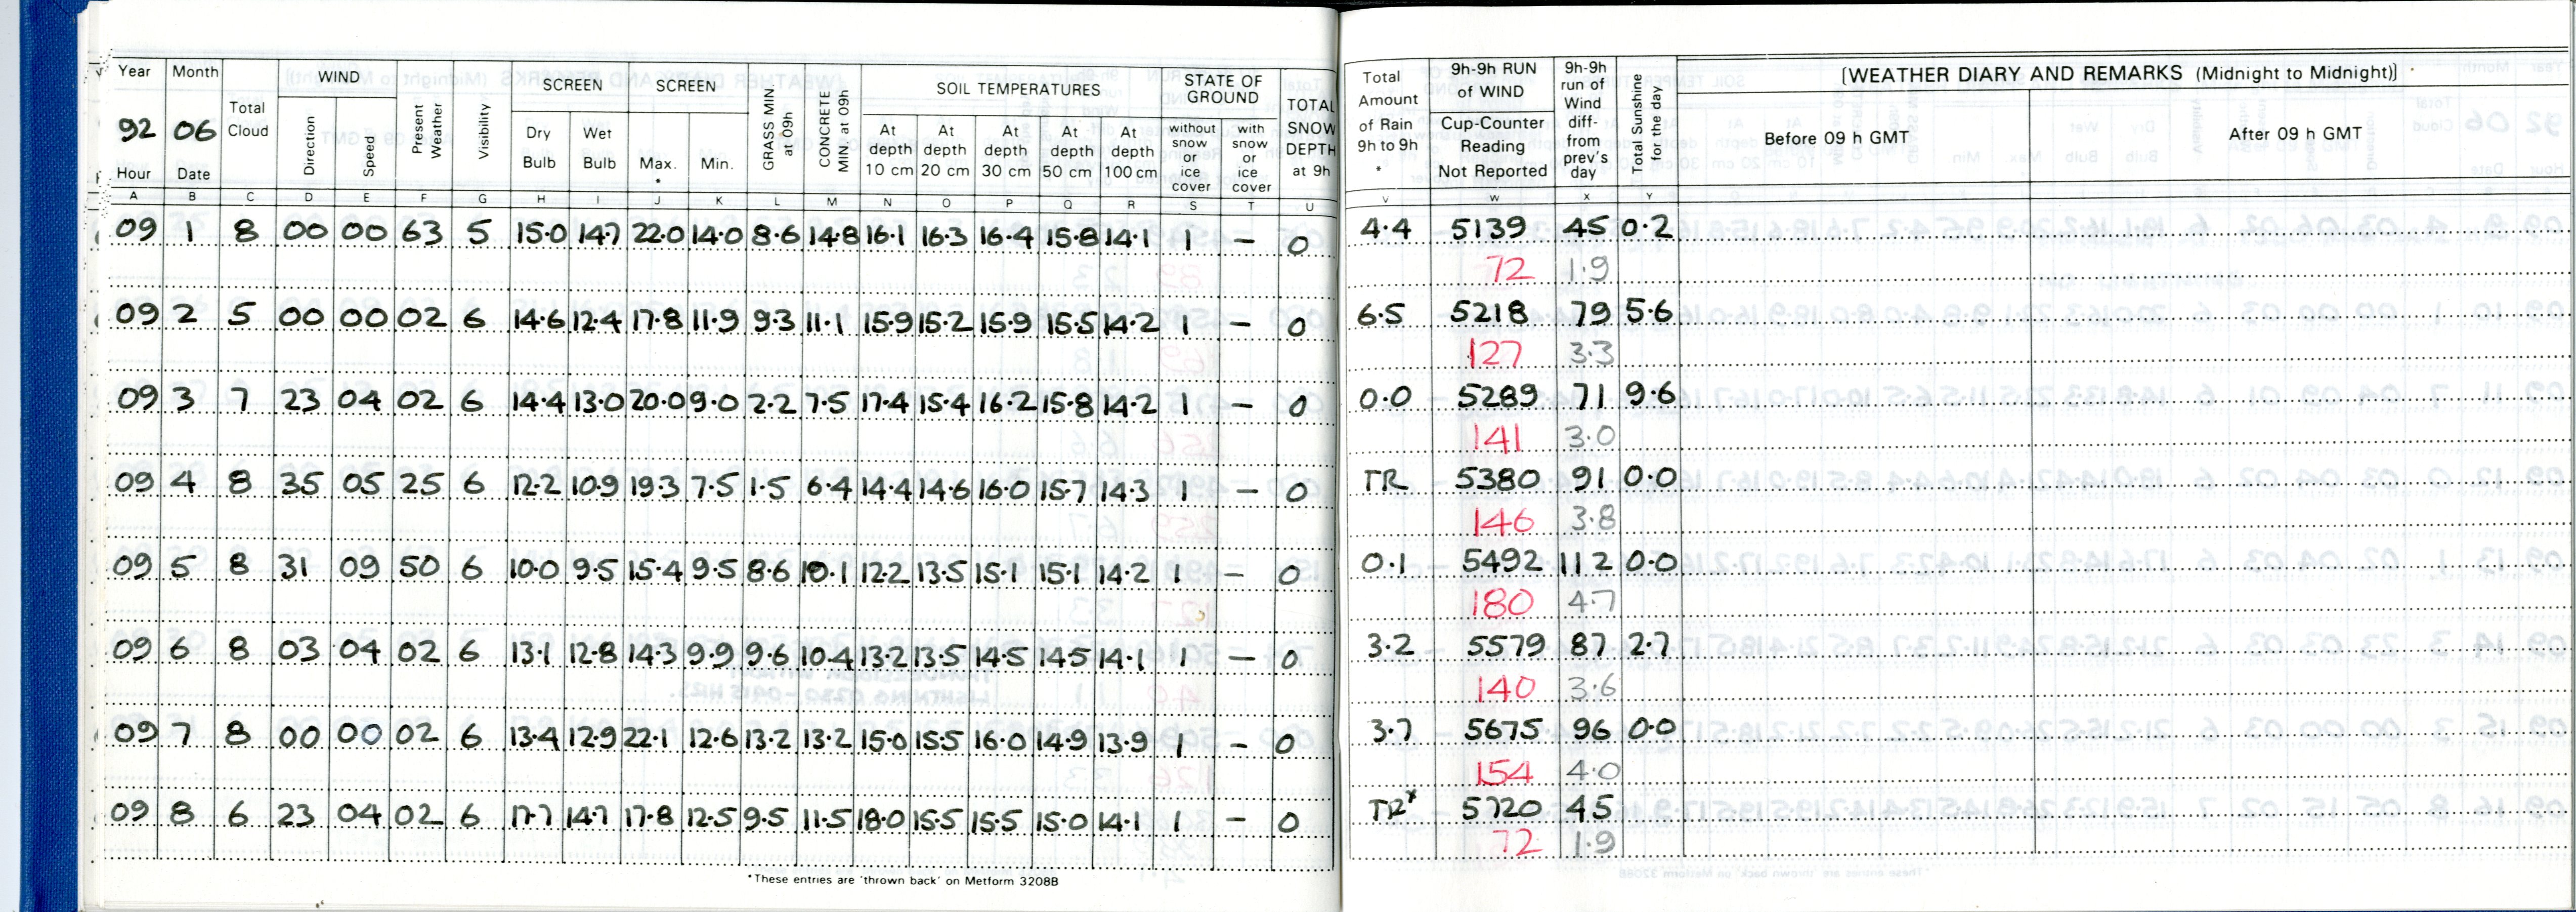 Year Month Total Cloud WIND Present Weather Visibility SCREEN SCREEN GRASS MIN. at 09h CONCRETE MIN at 09h SOIL TEMPERATURES STATE OF GROUND TOTAL SNOW DEPTH at 9h
92 06 Direction Speed Dry Bulb Wet Bulb Max. * Min. At depth 10 cm At depth 20 cm At depth 30 cm At depth 50 cm At depth 100 cm without snow or ice cover with snow or ice cover
Hour Date
A B C D E F G H I J K L M N O P Q R S T U
09 1 8 00 00 63 5 15.0 14.7 22.0 14.0 8.6 14.8 16.1 16.3 16.4 15.8 14.1 1 - 0
09 2 5 00 00 02 6 14.6 12.4 17.8 11.9 9.3 11.1 15.9 15.2 15.9 15.5 14.2 1 - 0
09 3 7 23 04 02 6 14.4 13.0 20.0 9.0 2.2 7.5 17.4 15.4 16.2 15.8 14.2 1 - 0
09 4 8 35 05 25 6 12.2 10.9 19.3 7.5 1.5 6.4 14.4 14.6 16.0 15.7 14.3 1 - 0
09 5 8 31 09 50 6 10.0 9.5 15.4 9.5 8.6 10.1 12.2 13.5 15.1 15.1 14.2 1 - 0
09 6 8 03 04 02 6 13.1 12.8 14.3 9.9 9.6 10.4 13.2 13.5 14.5 14.5 14.1 1 - 0
09 7 8 00 00 02 6 13.4 12.9 22.1 12.6 13.2 13.2 15.0 15.5 16.0 14.9 13.9 1 - 0
09 8 6 23 04 02 6 17.7 14.7 17.8 12.5 9.5 11.5 18.0 15.5 15.5 15.0 14.1 1 - 0
*These entries are 'thrown back' on Metform 3208B
Total Amount of Rain 9h to 9h * 9h-9h RUN of WIND Cup-Counter Reading Not Reported 9h-9h run of Wind diff- from prev's day Total Sunshine for the day [WEATHER DIARY AND REMARKS (Midnight to Midnight)]
Before 09 h GMT After 09 h GMT
V W X Y
4.4 5139 45 0.2
72 1.9
6.5 5218 79 5.6
127 3.3
0.0 5289 71 9.6
141 3.0
TR 5380 91 0.0
146 3.8
0.1 5492 112 0.0
180 4.7
3.2 5579 87 2.7
140 3.6
3.7 5675 96 0.0
154 4.0
TR* 5720 45
72 1.9